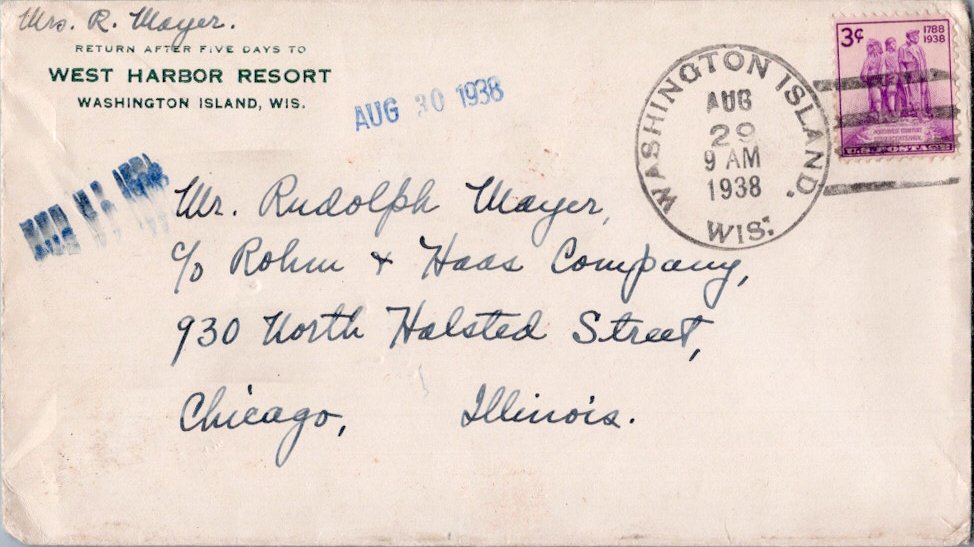 Mrs. R. Mayer.
RETURN AFTER FIVE DAYS TO
WEST HARBOR RESORT
WASHINGTON ISLAND, WIS.
AUG 30 1938
WASHINGTON ISLAND.
AUG
29
9 AM
1938
WIS.
3¢
1788
1938
U.S. POSTAGE
Mr. Rudolph Mayer,
c/o Rohm & Haas Company,
930 North Halsted Street,
Chicago, Illinois.